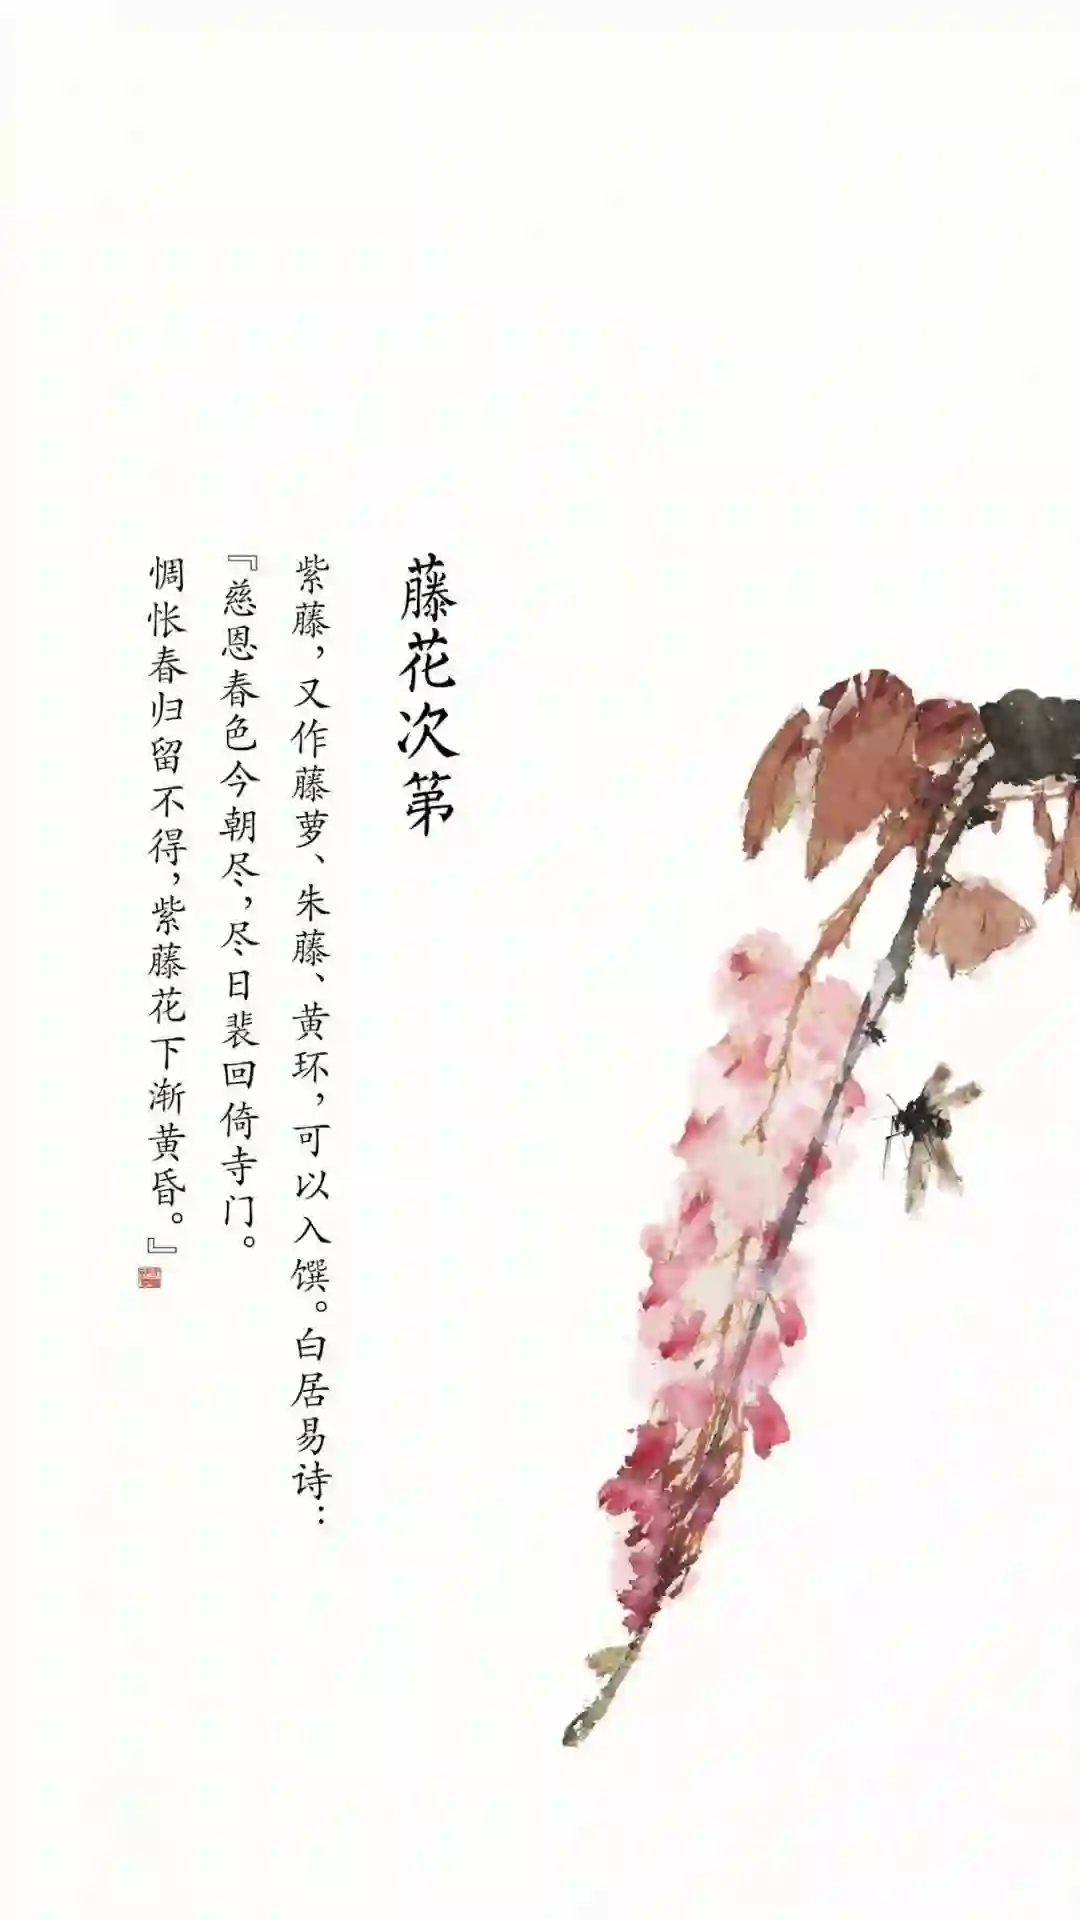 藤花次第
紫藤，又作藤萝、朱藤、黄环，可以入馔。白居易诗：
『慈恩春色今朝尽，尽日裴回倚寺门。
惆怅春归留不得，紫藤花下渐黄昏。』